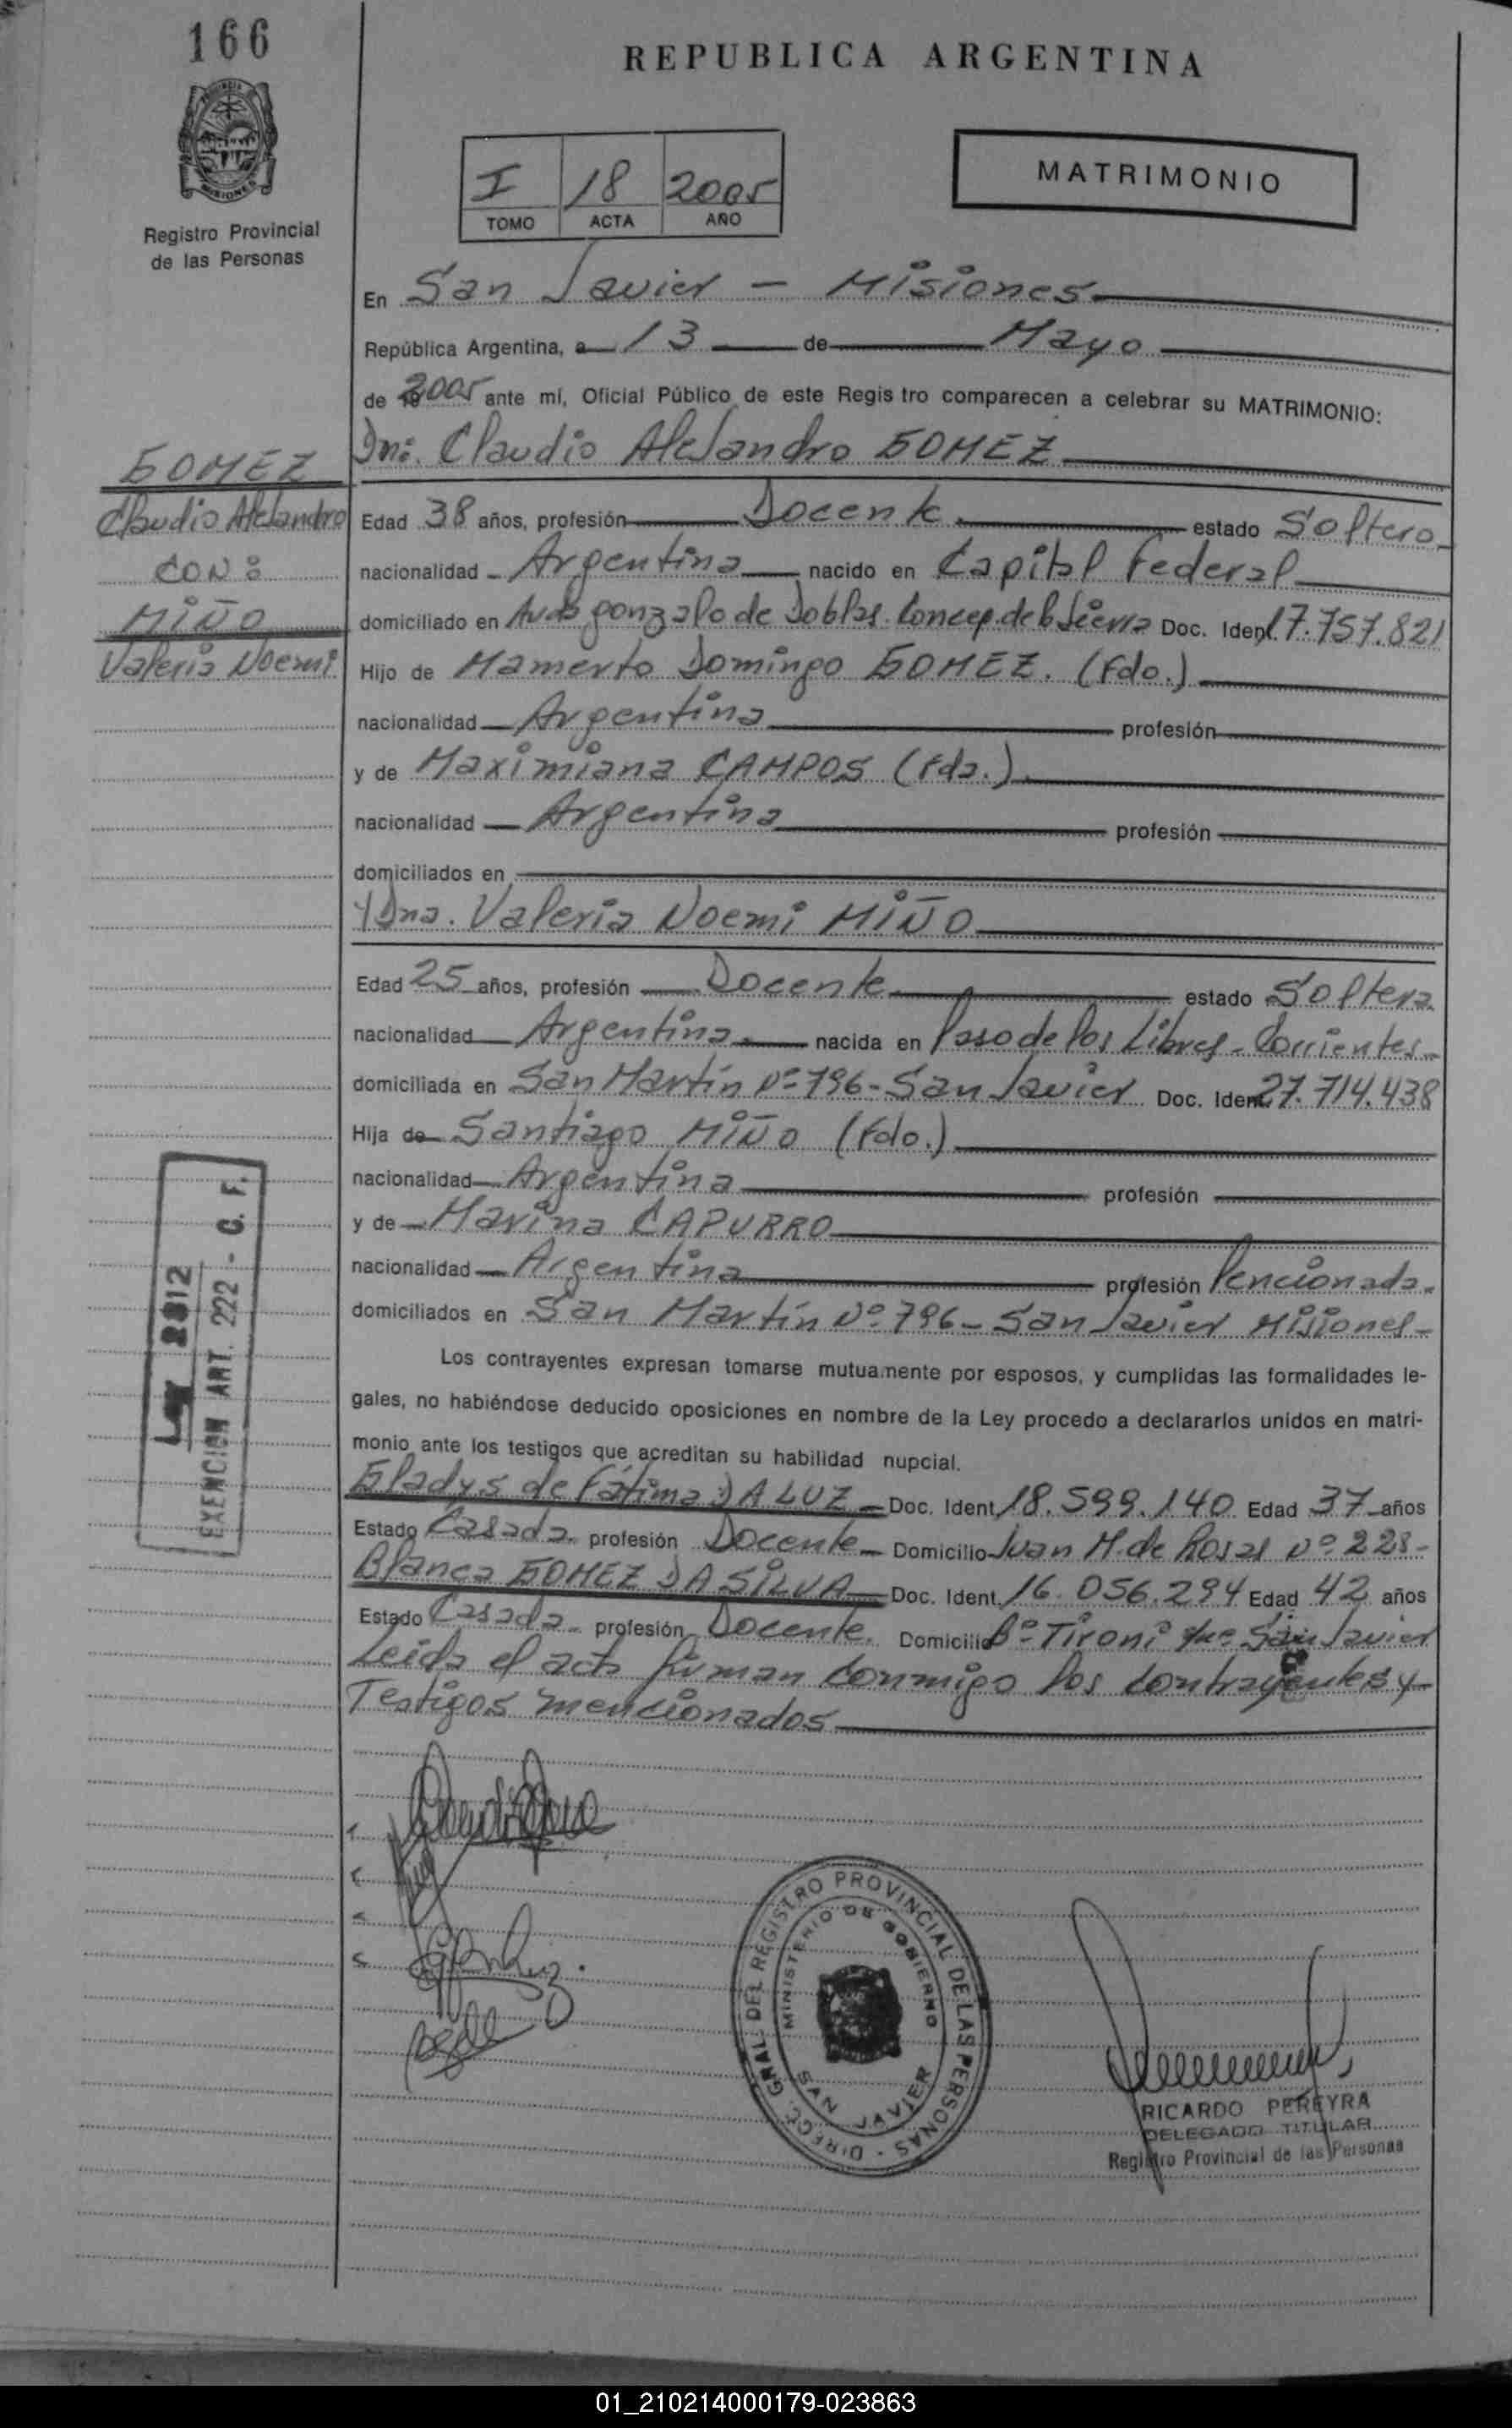 166
REPUBLICA ARGENTINA
I 18 2005
TOMO ACTA AÑO
MATRIMONIO
Registro Provincial
de las Personas
En San Javier - Misiones
República Argentina, a 13 de Mayo
de 2005 ante mí, Oficial Público de este Regis tro comparecen a celebrar su MATRIMONIO:
Dn: Claudio Alejandro GOMEZ
GOMEZ
Claudio Alejandro
CON:
MIÑO
Valeria Noemi.
Edad 38 años, profesión Docente estado Soltero
nacionalidad Argentina nacido en Capital Federal
domiciliado en Avda gonzalo de Doblas. Concep. de la Sierra Doc. Ident. 17.757.821
Hijo de Mamerto Domingo GOMEZ. (Fdo.)
nacionalidad Argentina profesión
y de Maximiana CAMPOS (Fda.)
nacionalidad Argentina profesión
domiciliados en
y Dna. Valeria Noemi MIÑO
Edad 25 años, profesión Docente estado Soltera
nacionalidad Argentina nacida en Paso de los Libres - Corrientes
domiciliada en San Martín Nº 796 - San Javier Doc. Ident. 27.714.438
Hija de Santiago MIÑO (Fdo.)
nacionalidad Argentina profesión
y de Marina CAPURRO
nacionalidad Argentina profesión Pencionada.
domiciliados en San Martín Nº 796 - San Javier Misiones -
Los contrayentes expresan tomarse mutuamente por esposos, y cumplidas las formalidades le-
gales, no habiéndose deducido oposiciones en nombre de la Ley procedo a declararlos unidos en matri-
monio ante los testigos que acreditan su habilidad nupcial.
Gladys de Fátima DA LUZ - Doc. Ident. 18.599.140 Edad 37 años
Estado Casada. profesión Docente - Domicilio Juan M. de Rosas Nº 228 -
Blanca GOMEZ DA SILVA Doc. Ident. 16.056.294 Edad 42 años
Estado Casada. profesión Docente. Domicilio Bº Tironi San Javier
Leída el acta firman conmigo los contrayentes y
Testigos mencionados
Ley 2812
EXENCION ART. 222 - C. F.
DIRECC. GRAL. DEL REGISTRO PROVINCIAL DE LAS PERSONAS -
MINISTERIO DE GOBIERNO
SAN JAVIER
RICARDO PEREYRA
DELEGADO TITULAR
Registro Provincial de las Personas
01_210214000179-023863